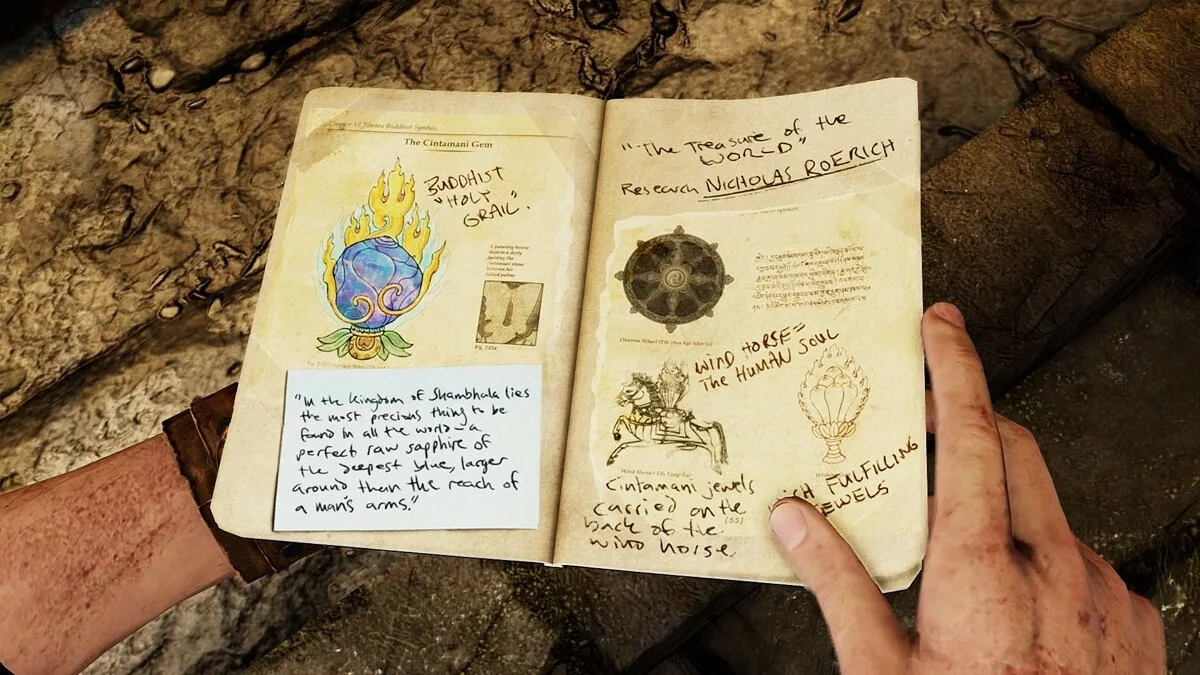 Chapter VI Tibetan Buddhist Symbols
The Cintamani Gem
BUDDHIST
"HOLY
GRAIL".
A painting below
depicts a deity
holding the
cintamani stone
between his
folded palms
"In the Kingdom of Shambhala lies
the most precious thing to be
found in all the world - a
perfect raw sapphire of
the deepest blue, larger
around than the reach of
a man's arms."
"The Treasure of the
WORLD"
Research NICHOLAS ROERICH
Dharma Wheel (Tib.
WIND HORSE =
THE HUMAN SOUL
Wind Horse (Tib. Lung-Ta)
Cintamani jewels
carried on the
back of the [55]
wind horse
FULFILLING
JEWELS